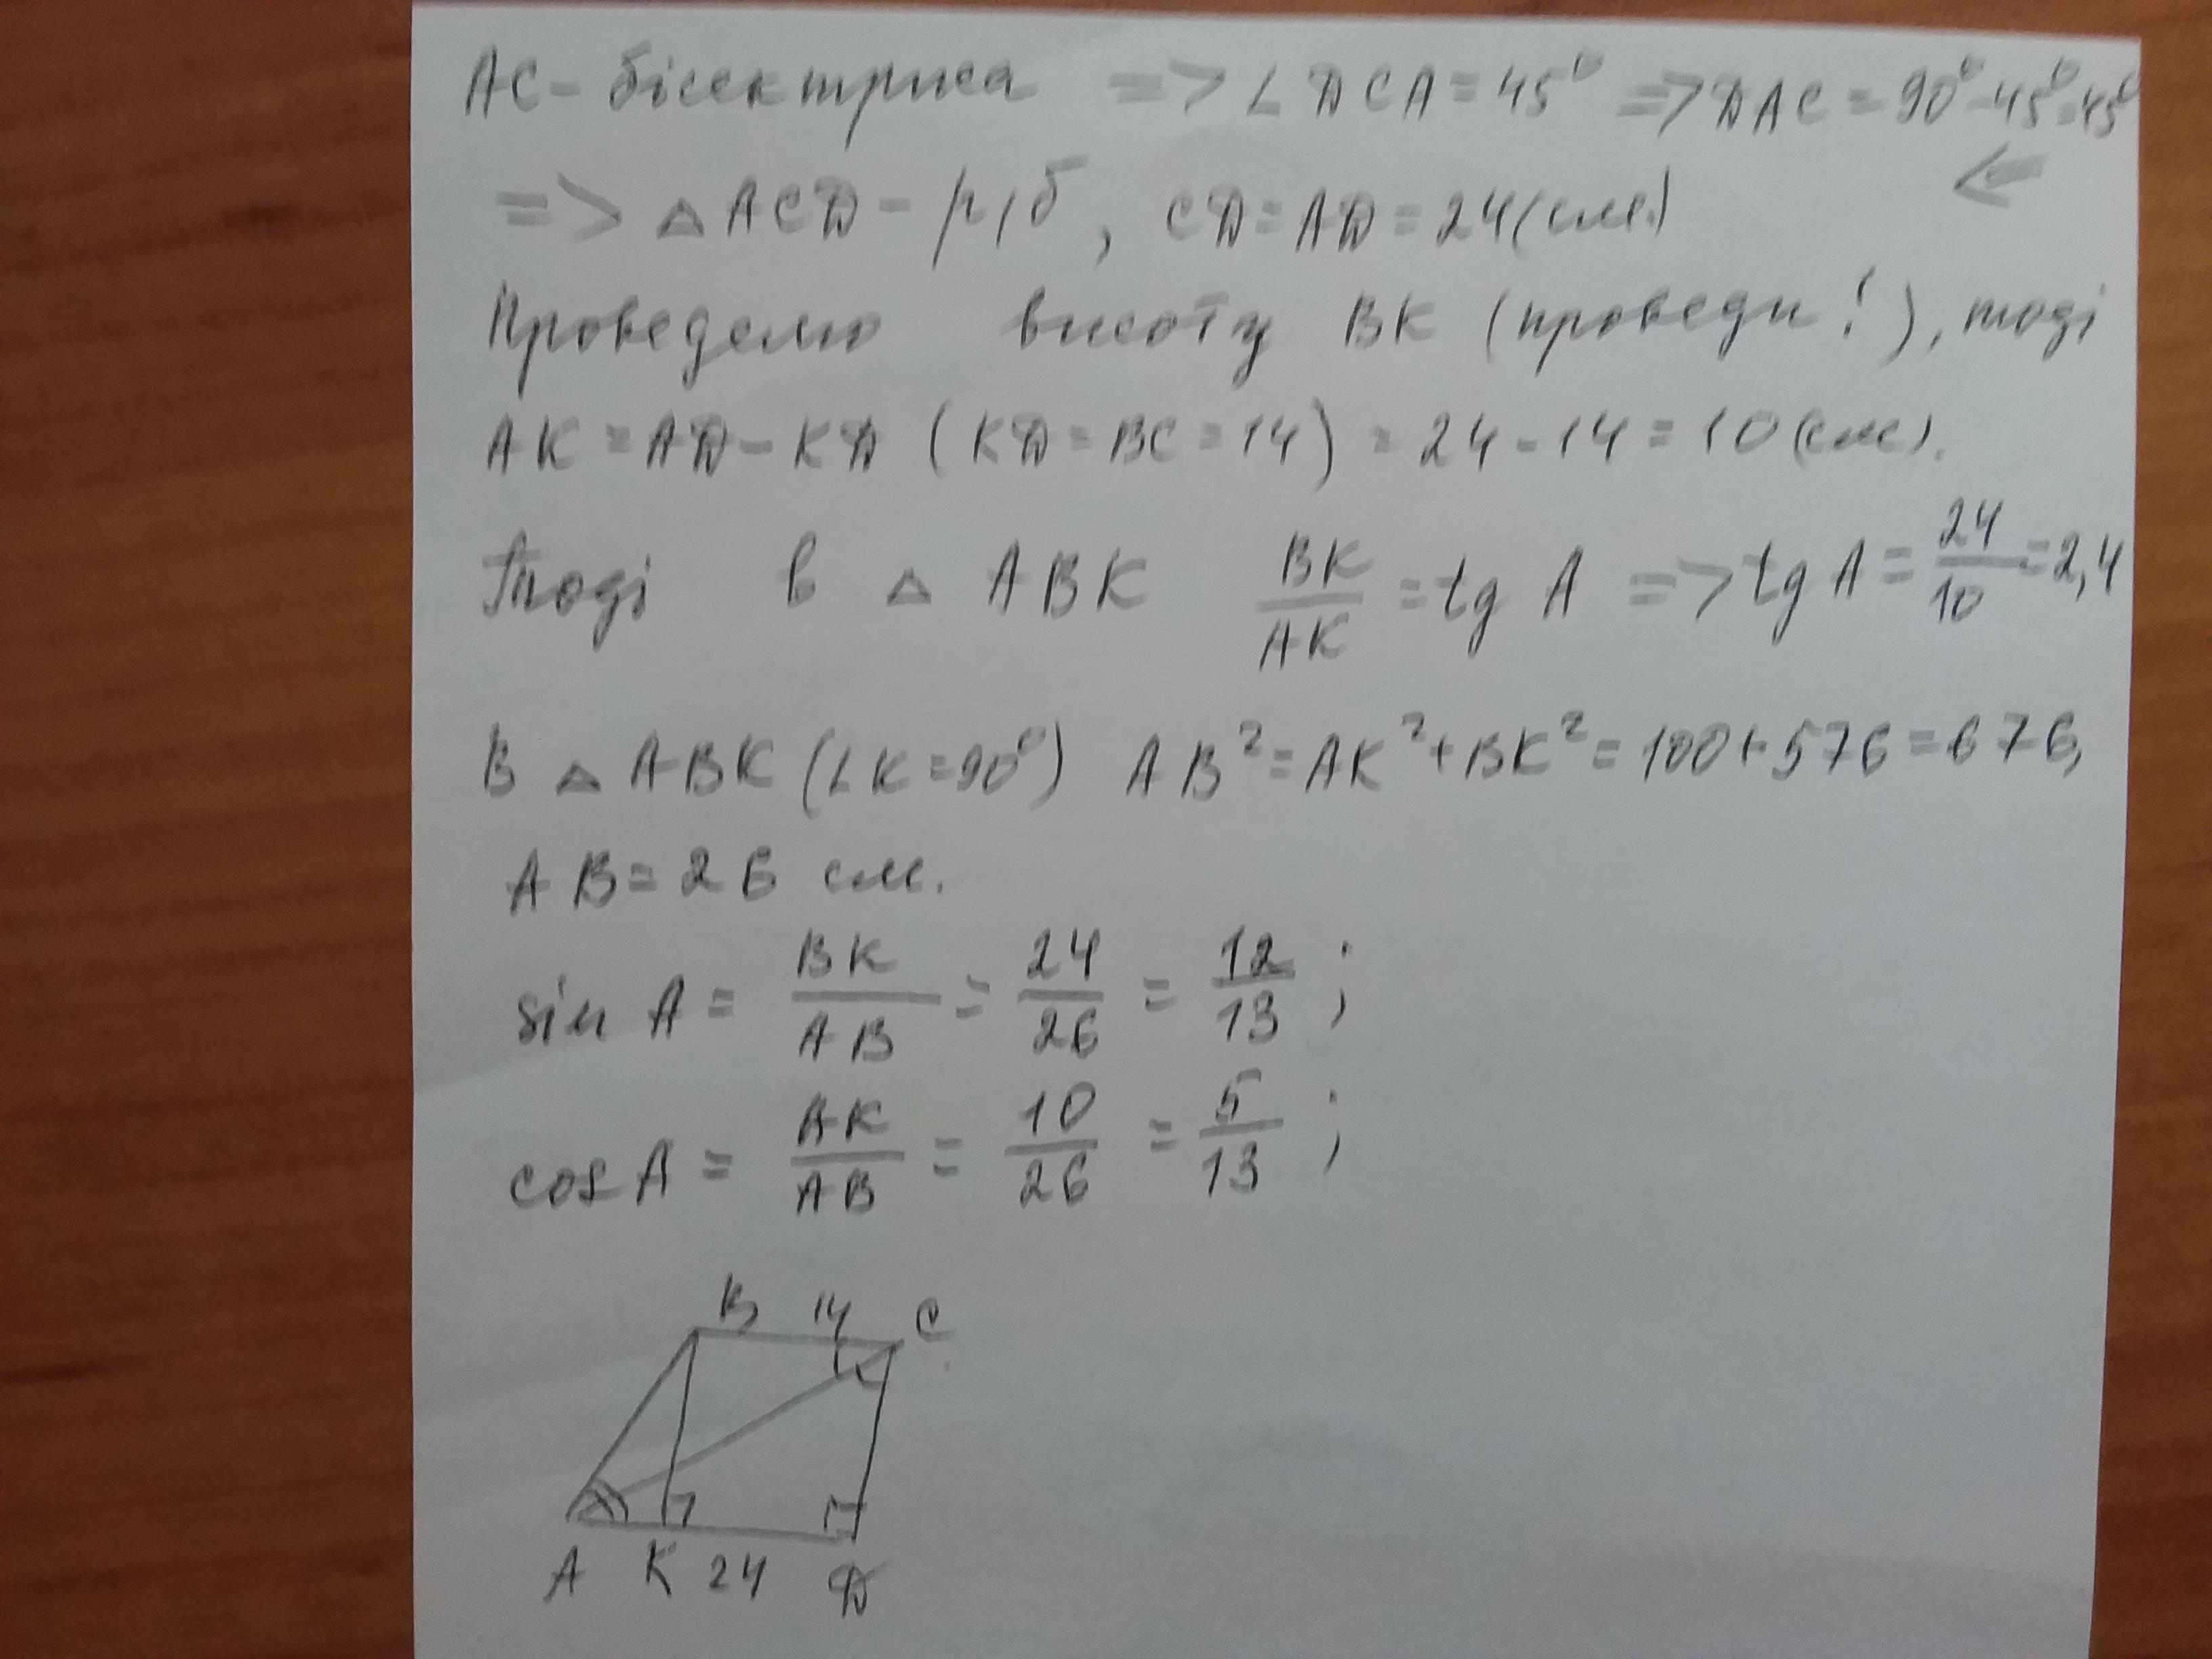 AC - бісектриса => ∠DCA = 45° => DAC = 90° - 45° = 45°
=> △ACD - р/б, CD = AD = 24 (см.) <=
Проведемо висоту BK (проведи!), тоді
AK = AD - KD (KD = BC = 14) = 24 - 14 = 10 (см).
Тоді в △ABK BK/AK = tg A => tg A = 24/10 = 2,4
В △ABK (∠K = 90°) AB² = AK² + BK² = 100 + 576 = 676,
AB = 26 см.
sin A = BK/AB = 24/26 = 12/13 ;
cos A = AK/AB = 10/26 = 5/13 ;
B 14 C
A K 24 D